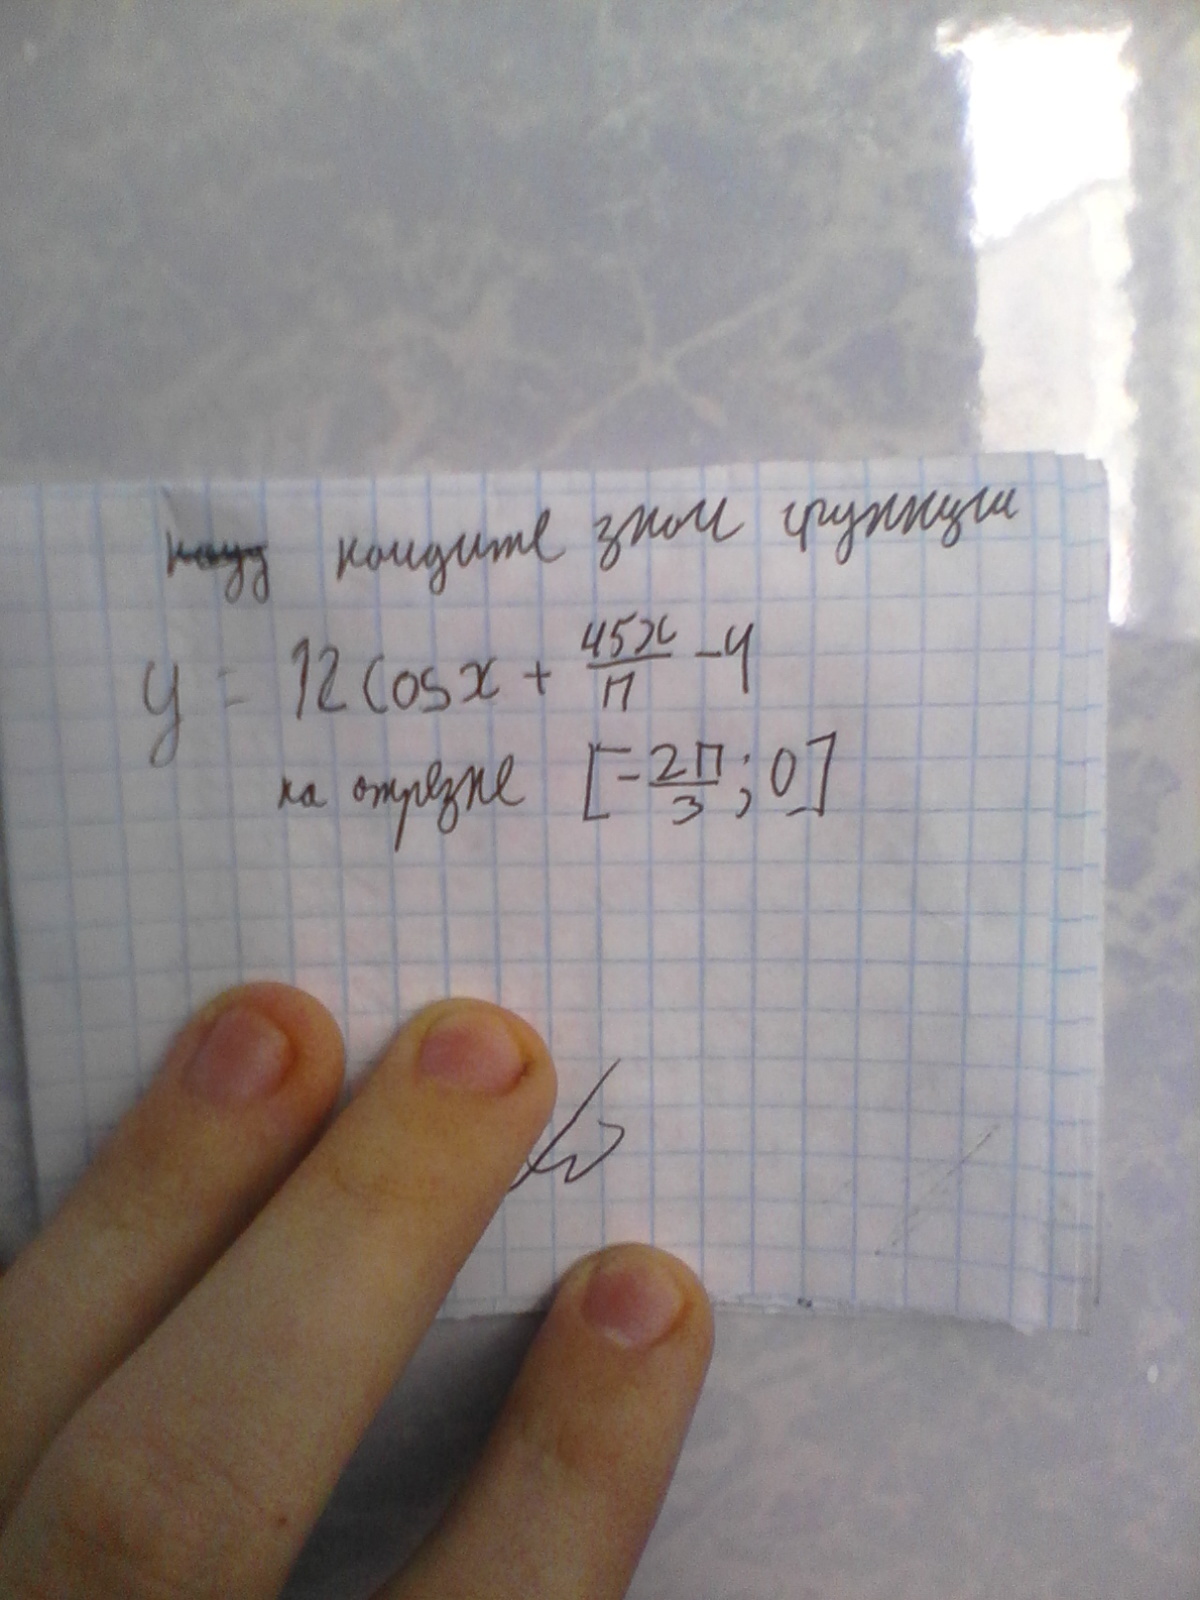 найдите знач функции
y = 12 cos x + 45x/П - 4
на отрезке [-2П/3; 0]